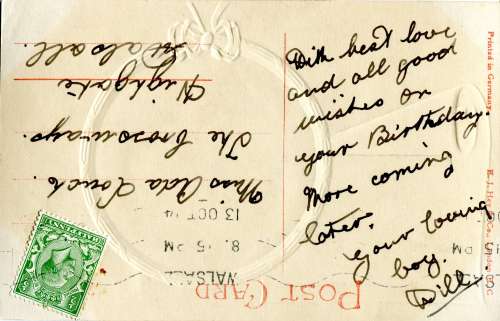 With best love
and all good
wishes on
your Birthday.
More coming
later.
Your loving
boy.
Bill
POST CARD
WALSALL
8.15 PM
13 OCT 14
Miss Ada
The Crossways.
Highgate
Walsall.
Printed in Germany